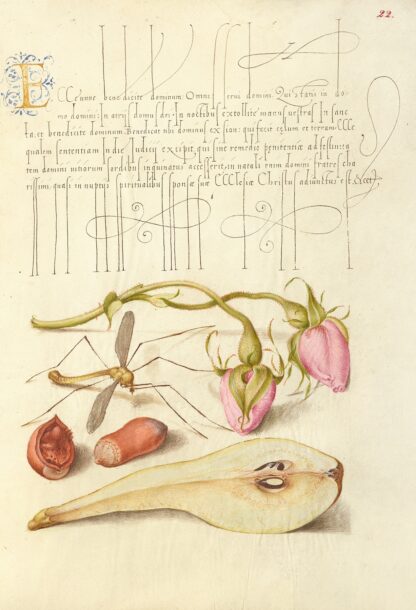 22.
Ecce nunc benedicite dominum Omnes serui domini. Qui statis in do-
mo domini: In atrijs domus dei: In noctibus extollite manus vestras In sanc
ta, et benedicite dominum. Benedicat tibi dominus ex sion: qui fecit celum et terram.
qualem sententiam in die Judicij excipit, qui sine remedio penitentiæ ad
tem domini uitiorum sordibus inquinatus accesserit. in natali enim domini
rissimi, quasi in nuptijs spiritualibus sponsæ suæ Ecclesiæ Christus adiunctus est.